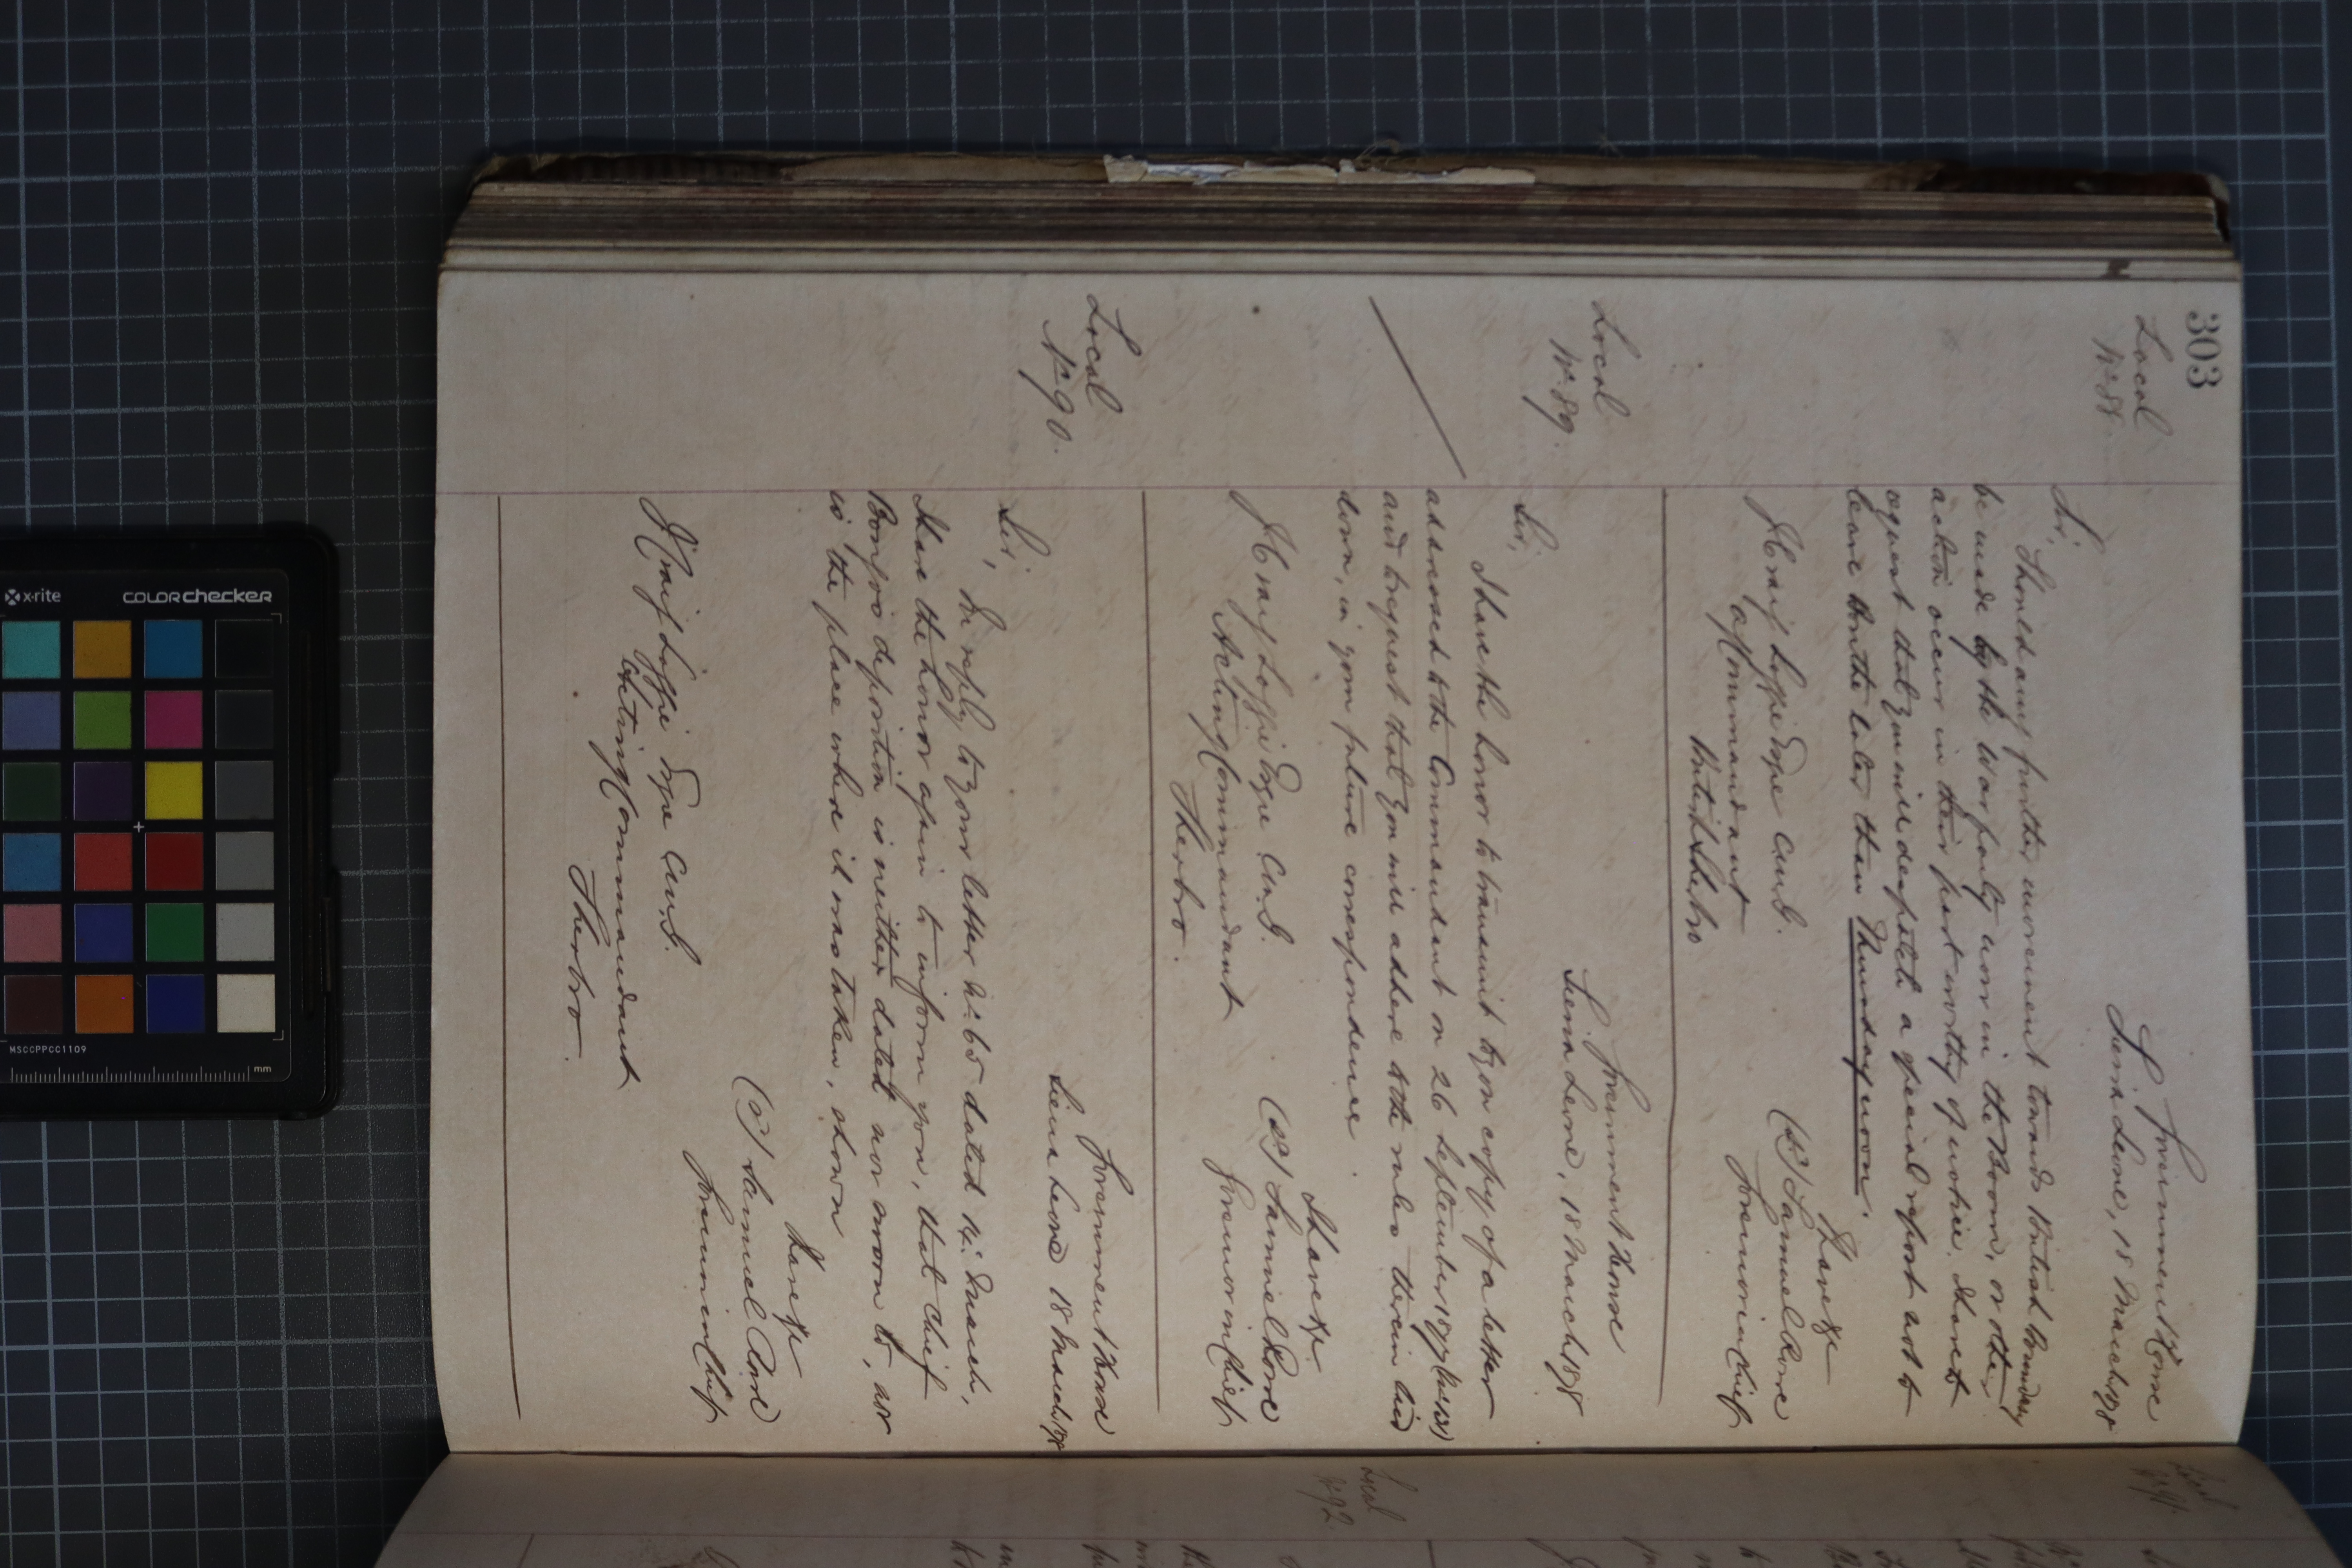 303
Local
No. 88
Government House
Sierra Leone, 18 March/78
Sir,
Should any further movement towards British Boundary
be made by the War party now in the Boom, or other
action occur in their part worthy of notice, I have to
request that you will despatch a special report so as to
leave Bonthe later than Thursday noon.
I have &c
(Sd) Samuel Rowe
Governor in Chief
Esqre C.M.G.
Commandant
British Sherbro
Local
No. 89.
Government House
Sierra Leone, 18 March/78
Sir,
I have the honor to transmit to you copy of a letter
addressed to the Commandant on 26 September 1877
and to request that you will adhere to the rules therein laid
down, in your future correspondence.
I have &c.
(Sd) Samuel Rowe
Governor in Chief
Esqre C.M.G.
Acting Commandant
Sherbro.
Local
No. 90.
Government House
Sierra Leone 18 March/78
Sir,
In reply to your letter No. 65 dated 14. March,
I have the honor again to inform you, that Chief
deposition is neither dated nor sworn to, nor
is the place where it was taken, shown
I have &c
(Sd) Samuel Rowe
Governor in Chief
Esqre C.M.G.
Acting Commandant
Sherbro.
Local
No. 91.
Local
No. 92.
x-rite
colorchecker
MSCCPPCC1109
mm